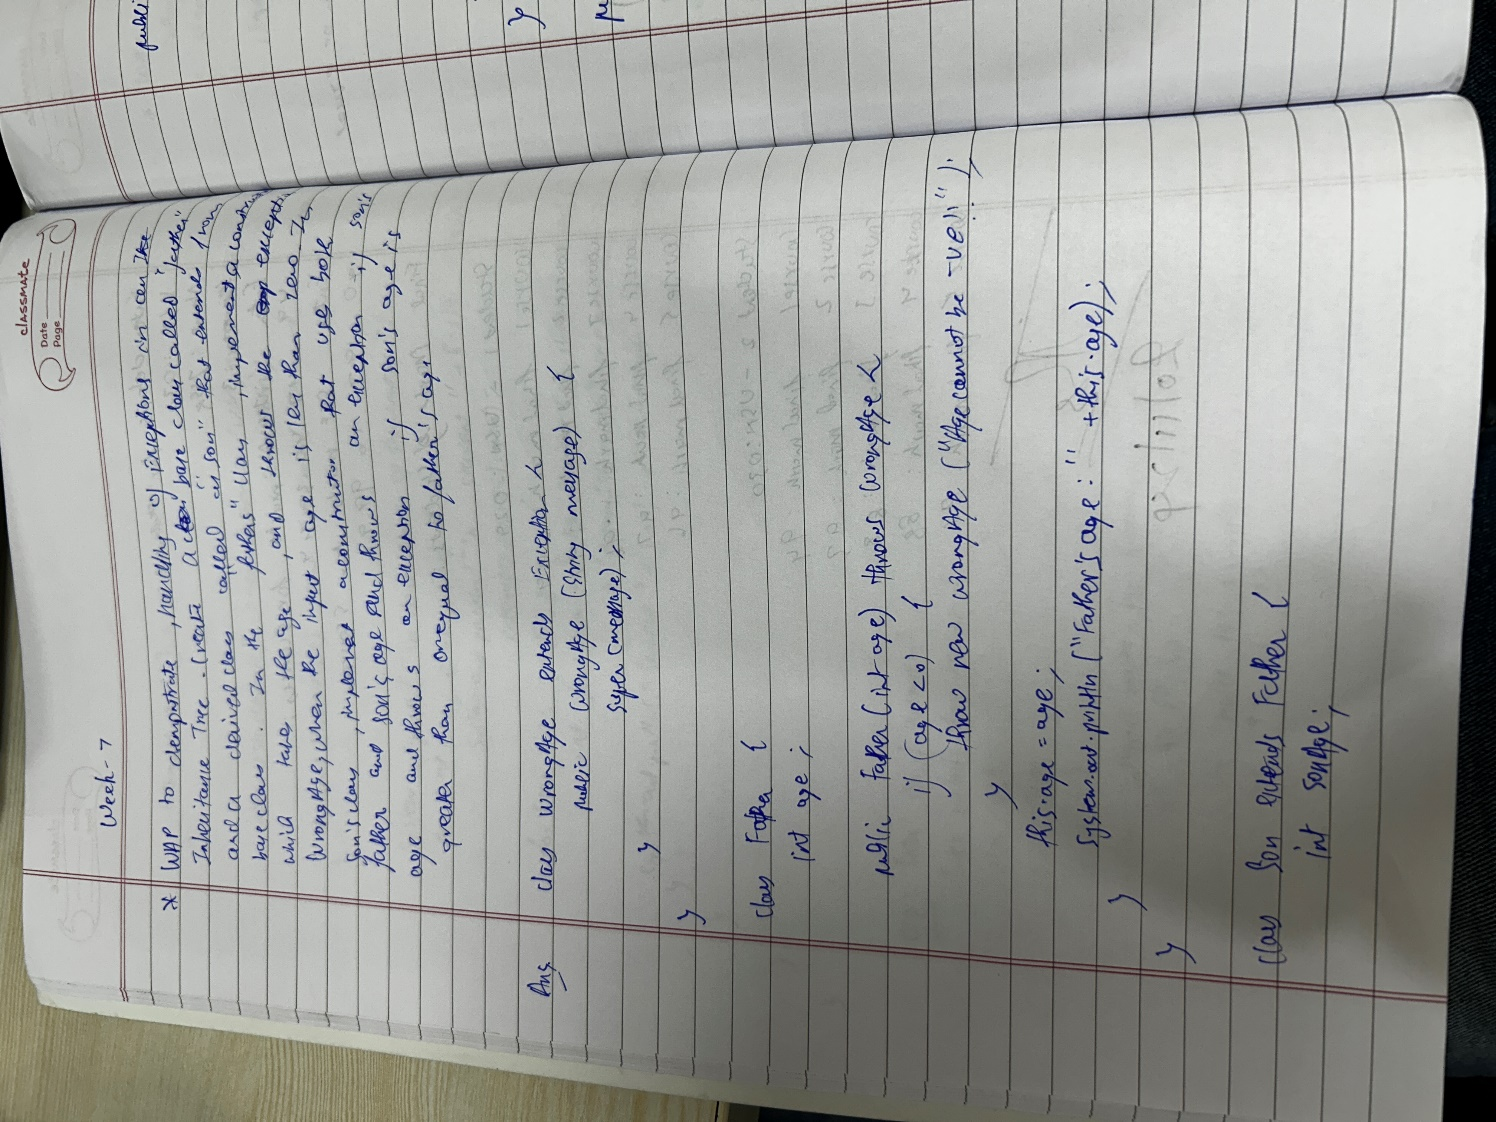 classmate
Date
Page
Week - 7
* WAP to demonstrate, handling of exceptions in
Inheritance Tree. Create a base class called "father"
and a derived class called as "son" that extends from
base class. In the father's class, implement a
which takes the age, and throws the
WrongAge, when the input age is less than zero. In
son's class, implement a that use both
father and son's age and throws an exception if son's
age and throws an exception if son's age is
greater than or equal to father's age.
Ans class WrongAge extends Exception {
public WrongAge (String message) {
super (message);
}
}
class Father {
int age;
public Father (int age) throws WrongAge {
if (age < 0) {
throw new WrongAge ("Age cannot be -ve!!");
}
this.age = age;
System.out.println ("Father's age : " + this.age);
}
}
class Son extends Father {
int sonAge;
publi
}